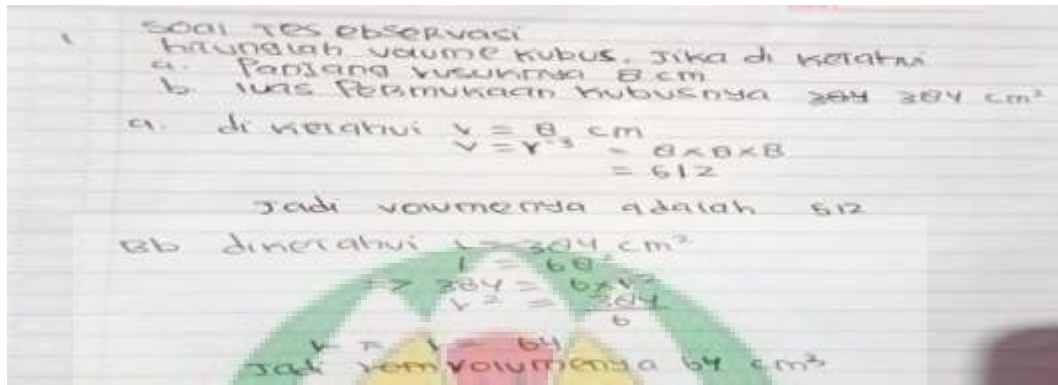 1 Soal Tes ebservasi
hitunglah volume kubus. Jika di ketahui
a. Panjang rusuknya 8 cm
b. luas Permukaan kubusnya 384 cm²
a. di ketahui r = 8 cm
v = r³ = 8 x 8 x 8
= 512
Jadi volumenya adalah 512
Bb diketahui L = 384 cm²
=> 384 = 6 x r²
r² = 384
6
64
Jadi volumenya 64 cm³